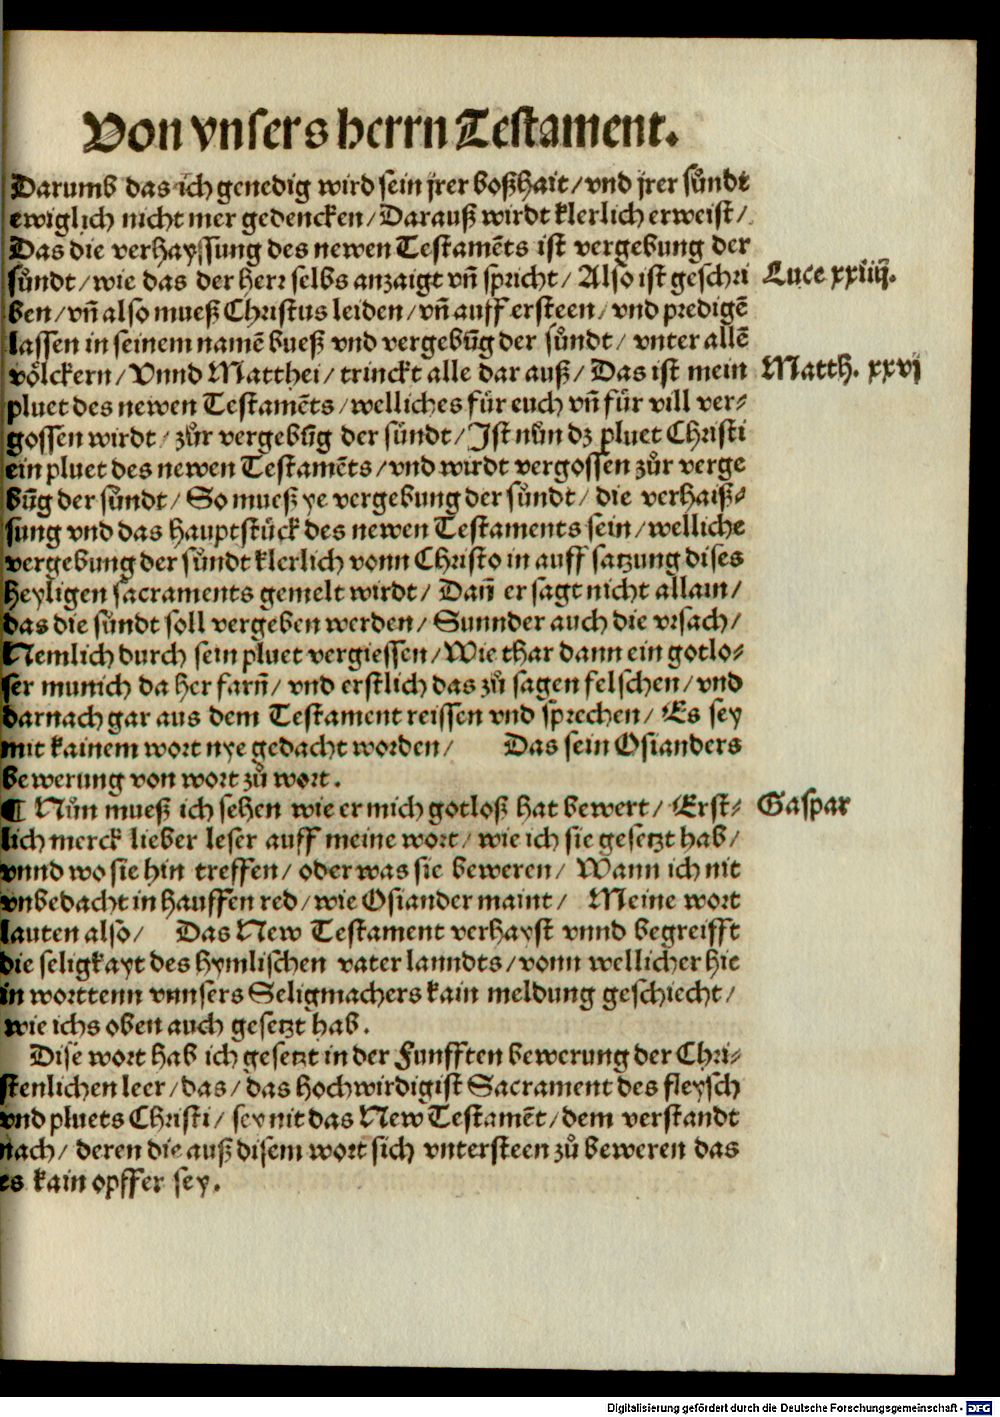 Von vnsers herrn Testament.
Darumb das ich genedig wird sein jrer boßhait/ vnd jrer sündt
ewiglich nicht mer gedencken/ Darauß wirdt klerlich erweist/
Das die verhayssung des newen Testamēts ist vergebung der
sündt/ wie das der herr selbs anzaigt vn̄ spricht/ Also ist geschri
Luce xxiiij.
ben/ vn̄ also mueß Christus leiden/ vn̄ auff ersteen/ vnd predigē
lassen in seinem namē bueß vnd vergebūg der sündt/ vnter allē
völckern/ Vnnd Matthei/ trinckt alle dar auß/ Das ist mein
Matth. xxvj
pluet des newen Testamēts/ welliches für euch vn̄ für vill ver⸗
gossen wirdt/ zůr vergebūg der sündt/ Ist nůn dz pluet Christi
ein pluet des newen Testamēts/ vnd wirdt vergossen zůr verge
būg der sündt/ So mueß ye vergebung der sündt/ die verhaiß⸗
sung vnd das hauptstück des newen Testaments sein/ welliche
vergebung der sündt klerlich vonn Christo in auff satzung dises
heyligen sacraments gemelt wirdt/ Dan̄ er sagt nicht allain/
das die sündt soll vergeben werden/ Sunnder auch die vrsach/
Nemlich durch sein pluet vergiessen/ Wie thar dann ein gotlo⸗
ser munich da her farn̄/ vnd erstlich das zů sagen felschen/ vnd
darnach gar aus dem Testament reissen vnd sprechen/ Es sey
mit kainem wort nye gedacht worden/ Das sein Osianders
bewerung von wort zů wort.
¶ Nůn mueß ich sehen wie er mich gotloß hat bewert/ Erst⸗
Gaspar
lich merck lieber leser auff meine wort/ wie ich sie gesetzt hab/
vnnd wo sie hin treffen/ oder was sie beweren/ Wann ich nit
vnbedacht in hauffen red/ wie Osiander maint/ Meine wort
lauten also/ Das New Testament verhayst vnnd begreifft
die seligkayt des hymlischen vater lanndts/ vonn wellicher hie
in worttenn vnnsers Seligmachers kain meldung geschiecht/
wie ichs oben auch gesetzt hab.
Dise wort hab ich gesetzt in der Funfften bewerung der Chri⸗
stenlichen leer/ das/ das hochwirdigist Sacrament des fleysch
vnd pluets Christi/ sey nit das New Testamēt/ dem verstandt
nach/ deren die auß disem wort sich vntersteen zů beweren das
es kain opffer sey.
Digitalisierung gefördert durch die Deutsche Forschungsgemeinschaft - DFG